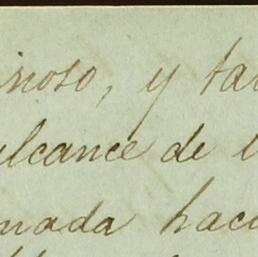 inoso, y tan
alcance de l
mada haci